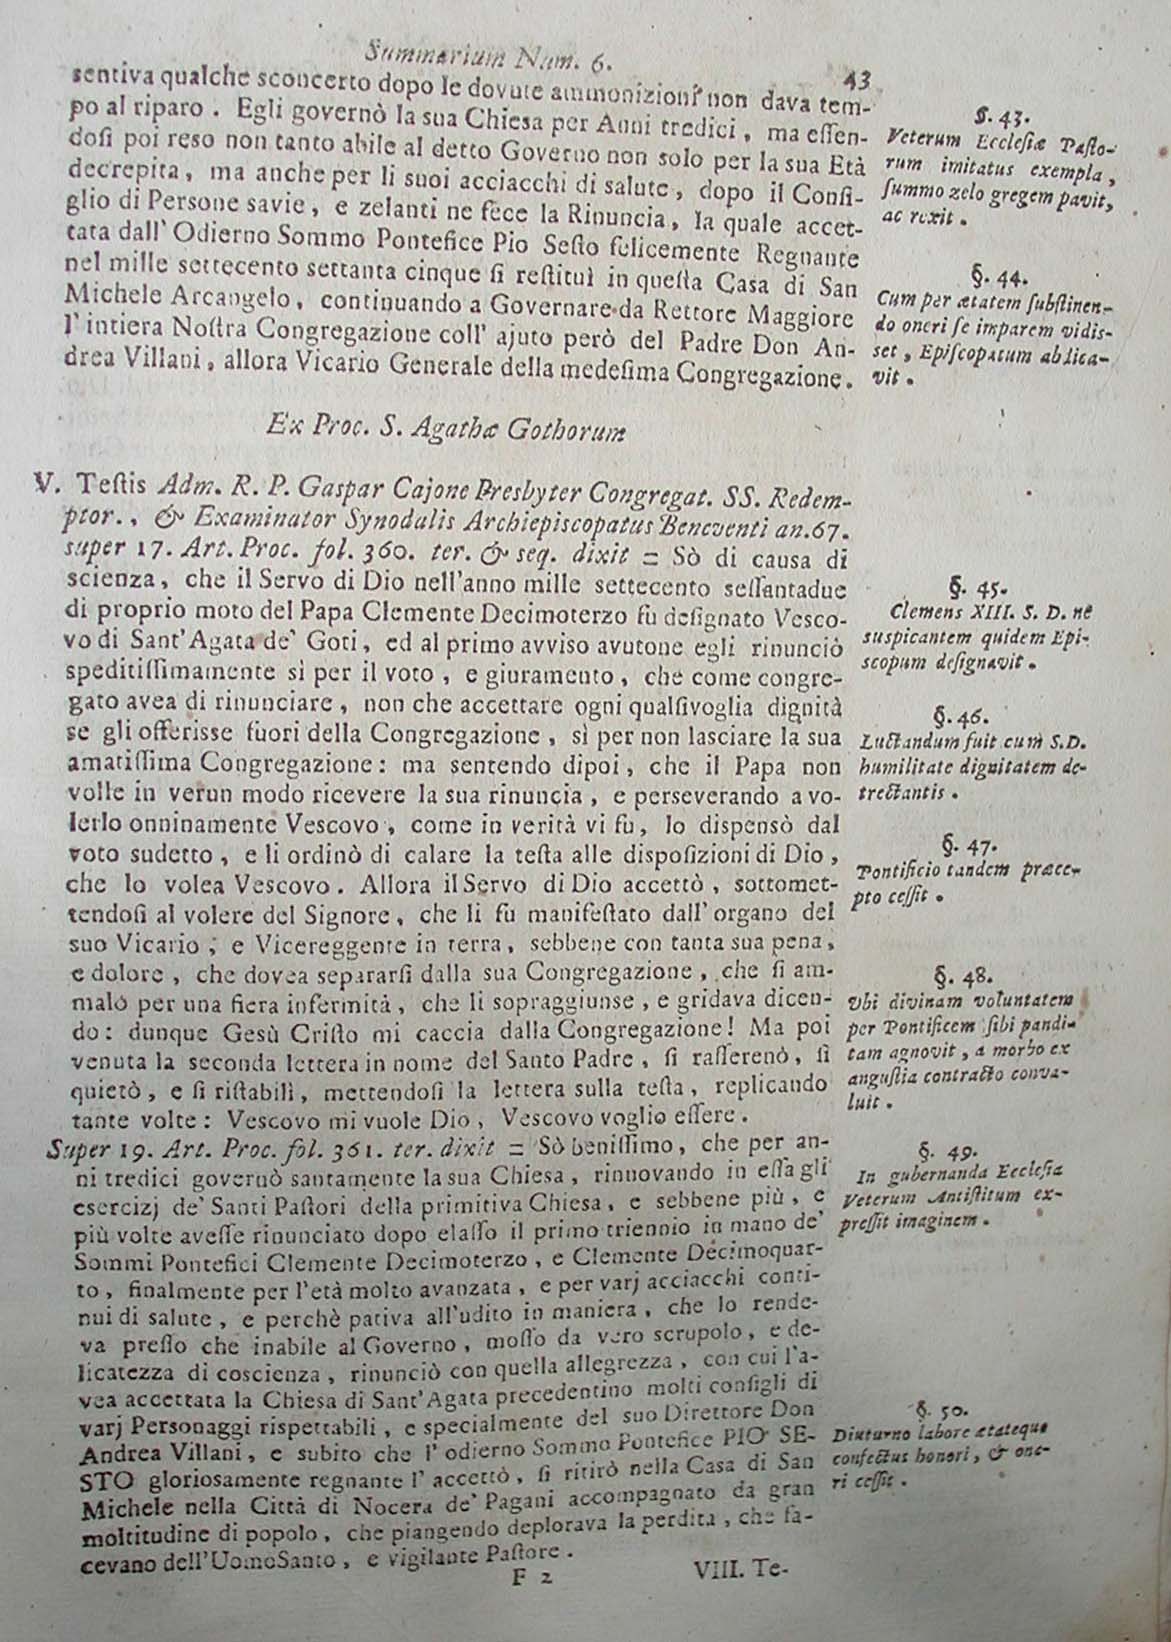 Summarium Num. 6.
43
sentiva qualche sconcerto dopo le dovute ammonizioni non dava tem-
po al riparo . Egli governò la sua Chiesa per Anni tredici , ma eſſen-
doſi poi reso non tanto abile al detto Governo non solo per la sua Età
decrepita , ma anche per li suoi acciacchi di salute , dopo il Conſi-
glio di Persone savie , e zelanti ne fece la Rinuncia , la quale accet-
tata dall' Odierno Sommo Pontefice Pio Seſto felicemente Regnante
nel mille settecento settanta cinque ſi reſtituì in queſta Casa di San
Michele Arcangelo , continuando a Governare da Rettore Maggiore
l' intiera Noſtra Congregazione coll' ajuto però del Padre Don An-
drea Villani , allora Vicario Generale della medeſima Congregazione .
§. 43.
Veterum Eccleſiæ Paſto-
rum imitatus exempla ,
ſummo zelo gregem pavit,
ac rexit .
§. 44.
Cum per ætatem ſubſtinen-
do oneri ſe imparem vidis-
set , Epiſcopatum abdica-
vit .
Ex Proc. S. Agathæ Gothorum
V. Teſtis Adm. R. P. Gaspar Cajone Presbyter Congregat. SS. Redem-
ptor. , & Examinator Synodalis Archiepiscopatus Beneventi an. 67.
super 17. Art. Proc. fol. 360. ter. & seq. dixit = Sò di causa di
scienza , che il Servo di Dio nell'anno mille settecento seſſantadue
di proprio moto del Papa Clemente Decimoterzo fù deſignato Vesco-
vo di Sant'Agata de' Goti , ed al primo avviso avutone egli rinunciò
speditiſſimamente sì per il voto , e giuramento , che come congre-
gato avea di rinunciare , non che accettare ogni qualſivoglia dignità
se gli offerisse fuori della Congregazione , sì per non lasciare la sua
amatiſſima Congregazione : ma sentendo dipoi , che il Papa non
volle in verun modo ricevere la sua rinuncia , e perseverando a vo-
lerlo onninamente Vescovo , come in verità vi fu , lo dispensò dal
voto sudetto , e li ordinò di calare la teſta alle dispoſizioni di Dio ,
che lo volea Vescovo . Allora il Servo di Dio accettò , sottomet-
tendoſi al volere del Signore , che li fu manifeſtato dall' organo del
suo Vicario , e Vicereggente in terra , sebbene con tanta sua pena ,
e dolore , che dovea separarſi dalla sua Congregazione , che ſi am-
malò per una fiera infermità , che li sopraggiunse , e gridava dicen-
do : dunque Gesù Criſto mi caccia dalla Congregazione ! Ma poi
venuta la seconda lettera in nome del Santo Padre , ſi raſſerenò , ſi
quietò , e ſi riſtabilì , mettendoſi la lettera sulla teſta , replicando
tante volte : Vescovo mi vuole Dio , Vescovo voglio eſſere .
§. 45.
Clemens XIII. S. D. nè
suspicantem quidem Epi-
scopum deſignavit .
§. 46.
Luctandum fuit cum S.D.
humilitate dignitatem de-
trectantis .
§. 47.
Pontificio tandem præce-
pto ceſſit .
§. 48.
Ubi divinam voluntatem
per Pontificem ſibi pandi-
tam agnovit , a morbo ex
anguſtia contracto conva-
luit .
Super 19. Art. Proc. fol. 361. ter. dixit = Sò beniſſimo , che per an-
ni tredici governò santamente la sua Chiesa , rinnovando in eſſa gli
esercizj de' Santi Paſtori della primitiva Chiesa , e sebbene più , e
più volte aveſſe rinunciato dopo elaſſo il primo triennio in mano de'
Sommi Pontefici Clemente Decimoterzo , e Clemente Decimoquar-
to , finalmente per l'età molto avanzata , e per varj acciacchi conti-
nui di salute , e perchè pativa all'udito in maniera , che lo rende-
va preſſo che inabile al Governo , moſſo da vero scrupolo , e de-
licatezza di coscienza , rinunciò con quella allegrezza , con cui l'a-
vea accettata la Chiesa di Sant'Agata precedentino molti conſigli di
varj Personaggi rispettabili , e specialmente del suo Direttore Don
Andrea Villani , e subito che l' odierno Sommo Pontefice PIO SE-
STO gloriosamente regnante l' accettò , ſi ritirò nella Casa di San
Michele nella Città di Nocera de' Pagani accompagnato da gran
moltitudine di popolo , che piangendo deplorava la perdita , che fa-
cevano dell'Uomo Santo , e vigilante Paſtore .
§. 49.
In gubernanda Eccleſia
Veterum Antiſtitum ex-
preſſit imaginem .
§. 50.
Diuturno labore ætateque
confectus honori , & one-
ri ceſſit .
F 2
VIII. Te-